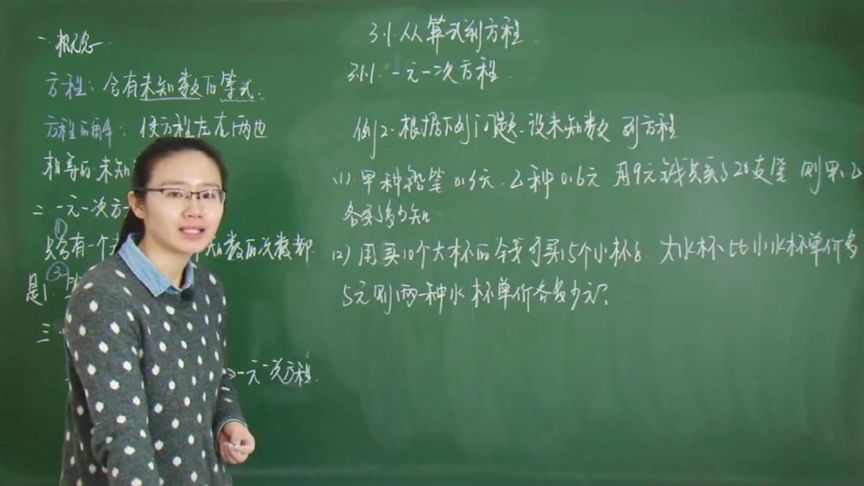 一 概念
方程：含有未知数的等式.
方程的解：使方程左右两边
相等的未知
二 一元一次方
① 只含有一个 知数的次数都
是1 ②
三 一
一元一次方程.
3.1.从算式到方程
3.1.1.一元一次方程.
例2.根据下列问题.设未知数 列方程
(1).甲种铅笔0.3元.乙种0.6元 用9元钱共买了20支笔 则甲乙
各买了多少知.
(2) 用买10个大杯的钱可买15个小杯. 大水杯比小水杯单价多
5元则两种水杯单价各多少元?